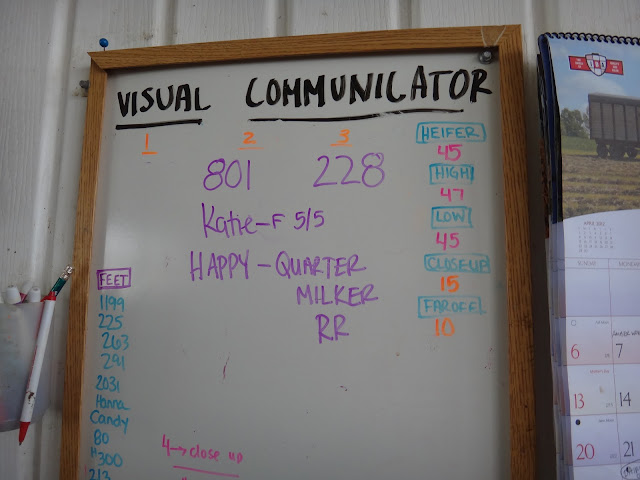 VISUAL COMMUNICATOR
1 2 3
801 228
Katie-F 5/5
HAPPY - QUARTER
MILKER
RR
HEIFER
45
HIGH
47
LOW
45
CLOSEUP
15
FAROFF
10
FEET
1199
225
263
291
2031
Hanna
Candy
80
300
213
4→close up
APRIL 2012
SUNDAY MONDAY
6 7
13 14
20 21